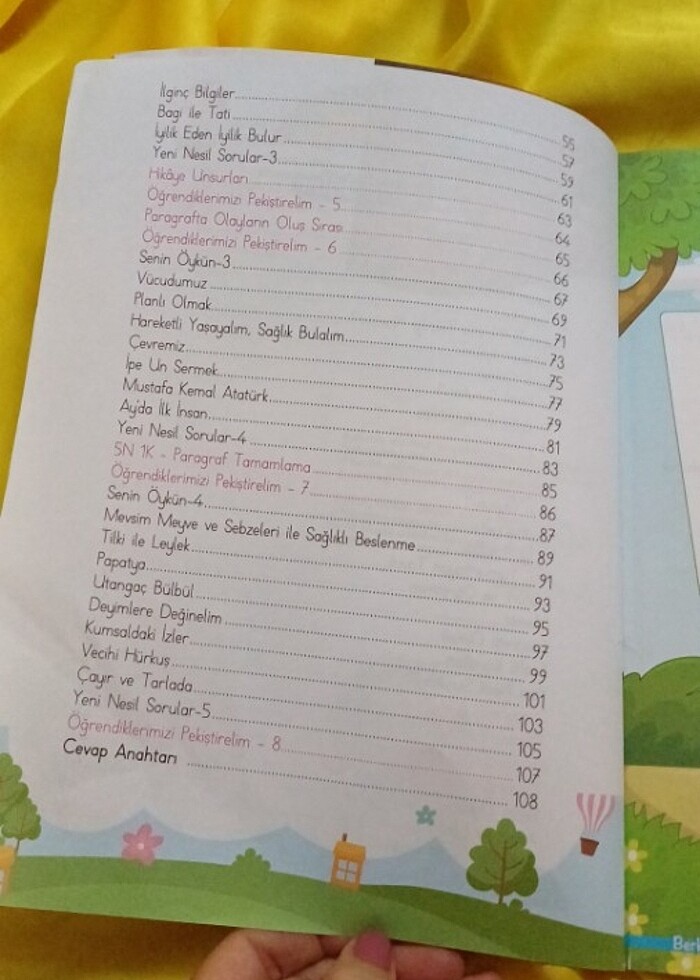 İlginç Bilgiler 55
Bagi ile Tati 57
İyilik Eden İyilik Bulur 59
Yeni Nesil Sorular-3 61
Hikâye Unsurları 63
Öğrendiklerimizi Pekiştirelim - 5 64
Paragrafta Olayların Oluş Sırası 65
Öğrendiklerimizi Pekiştirelim - 6 66
Senin Öykün-3 67
Vücudumuz 69
Planlı Olmak 71
Hareketli Yaşayalım, Sağlık Bulalım 73
Çevremiz 75
İpe Un Sermek 77
Mustafa Kemal Atatürk 79
Ay'da İlk İnsan 81
Yeni Nesil Sorular-4 83
5N 1K - Paragraf Tamamlama 85
Öğrendiklerimizi Pekiştirelim - 7 86
Senin Öykün-4 87
Mevsim Meyve ve Sebzeleri ile Sağlıklı Beslenme 89
Tilki ile Leylek 91
Papatya 93
Utangaç Bülbül 95
Deyimlere Değinelim 97
Kumsaldaki İzler 99
Vecihi Hürkuş 101
Çayır ve Tarlada 103
Yeni Nesil Sorular-5 105
Öğrendiklerimizi Pekiştirelim - 8 107
Cevap Anahtarı 108